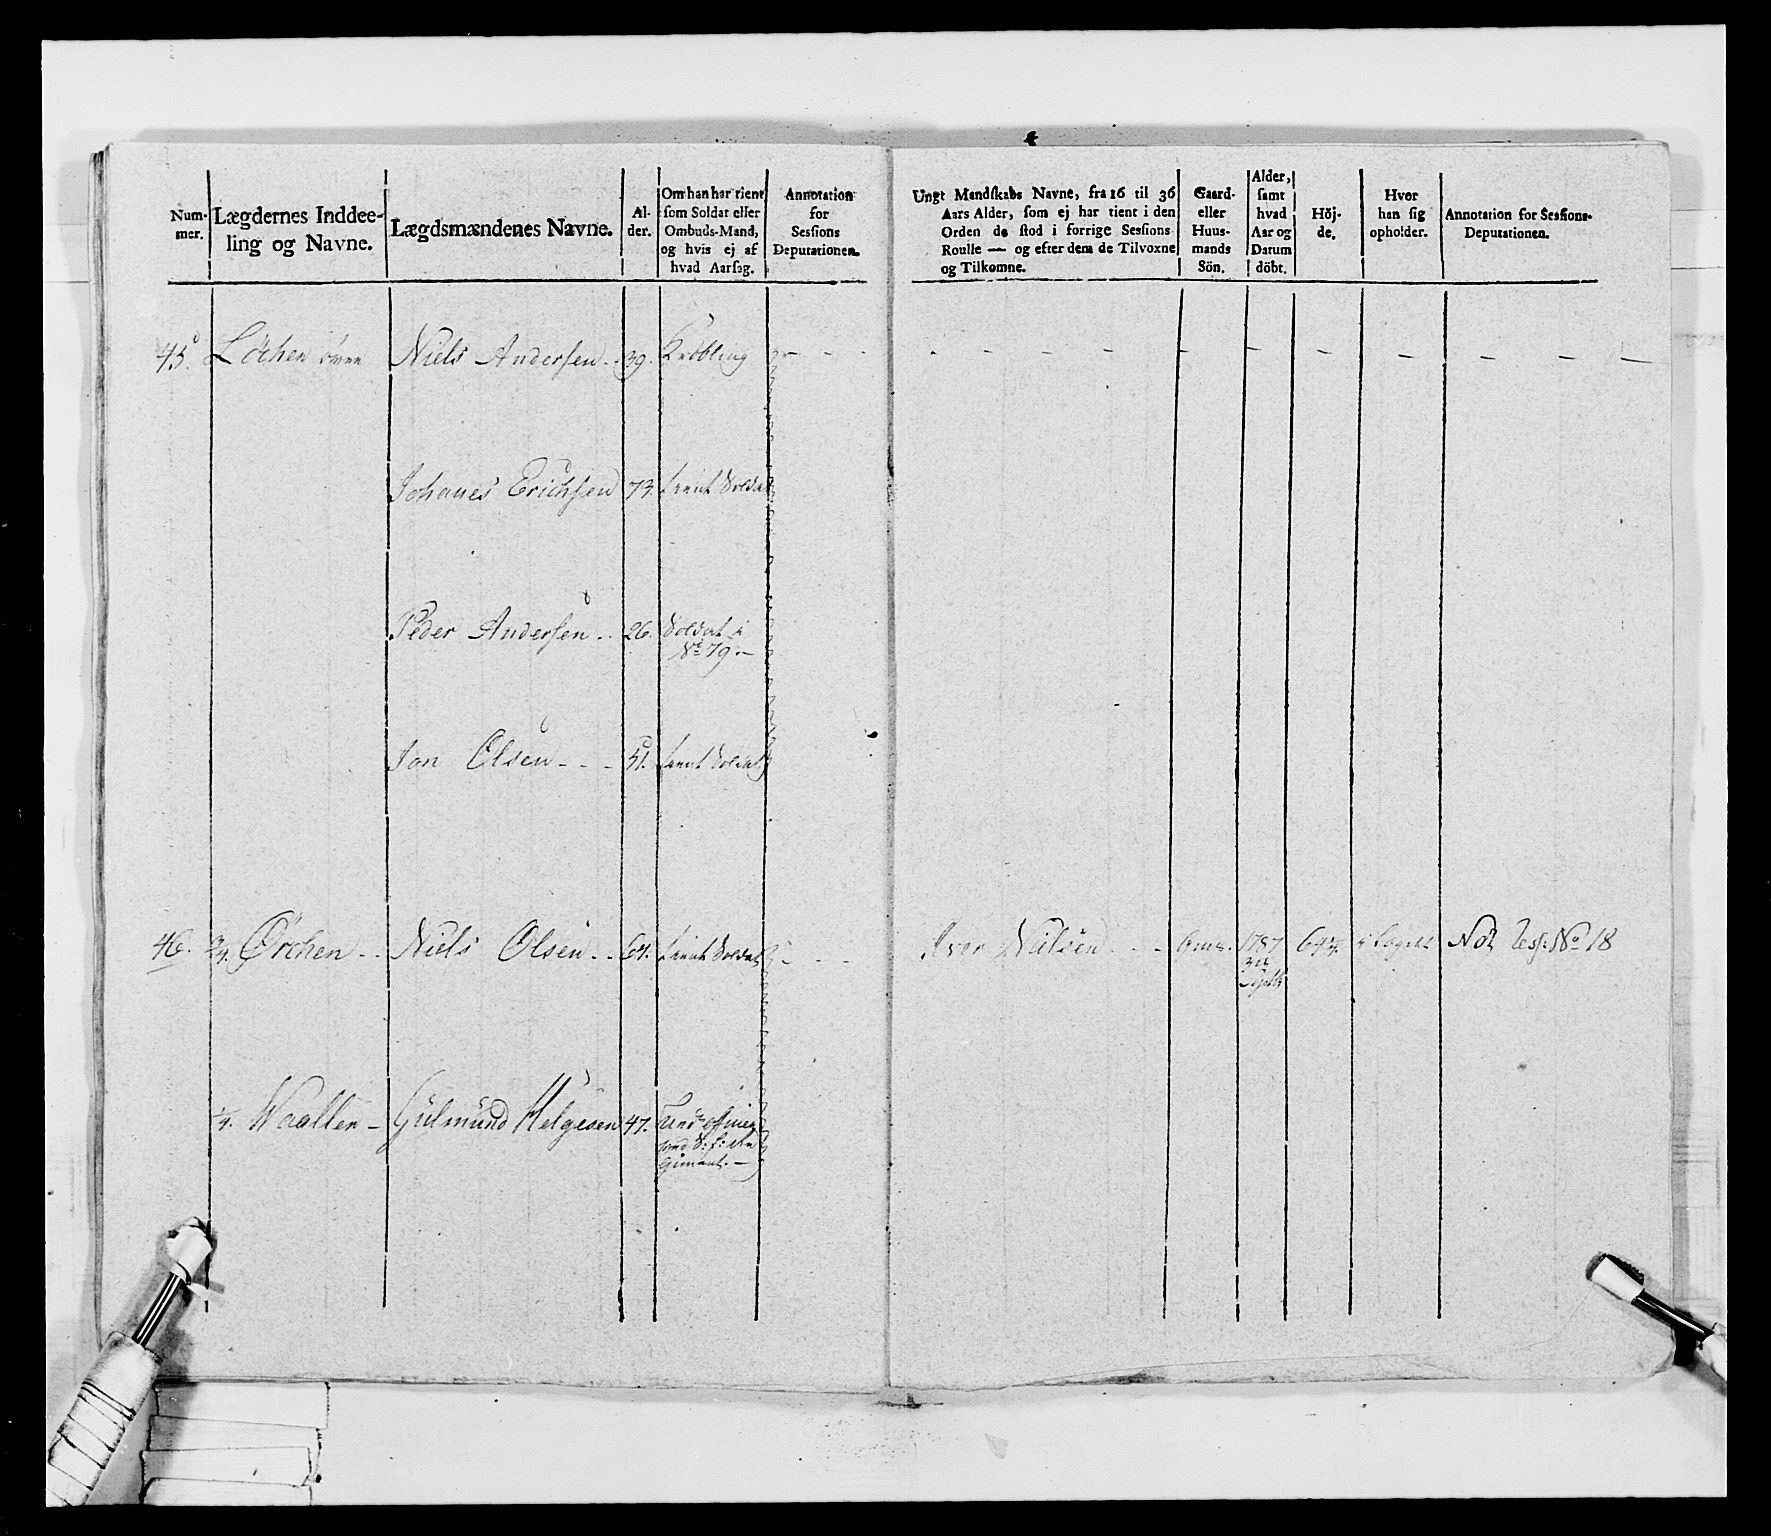 Num-
mer.
Lægdernes Inddee-
ling og Navne.
Lægdsmændenes Navne.
Al-
der.
Om han har tient
som Soldat eller
Ombuds-Mand,
og hvis ej af
hvad Aarsag.
Annotation
for
Sessions
Deputationen.
Ungt Mandskabs Navne, fra 16 til 36
Aars Alder, som ej har tient i den
Orden de stod i forrige Sessions
Roulle — og efter dem de Tilvoxne
og Tilkomne.
Gaard-
eller
Huus-
mands
Sön.
Alder,
samt
hvad
Aar og
Datum
döbt.
Höj-
de.
Hvor
han sig
opholder.
Annotation for Sessions-
Deputationen.
45. Löchen övre Niels Andersen 39. Kröbling
Johanes Erichsen 73. tient Soldat
Peder Andersen 26. Soldat i
No 79.
Jon Olsen 51. tient Soldat
46. 3/4 Örchen Niels Olsen 64. tient Soldat Iver Nielsen 1787 64 3/4 i Lægdet Not Sess: No 18
Septb
1/4 Waallen Gulmund Helgesen 47.